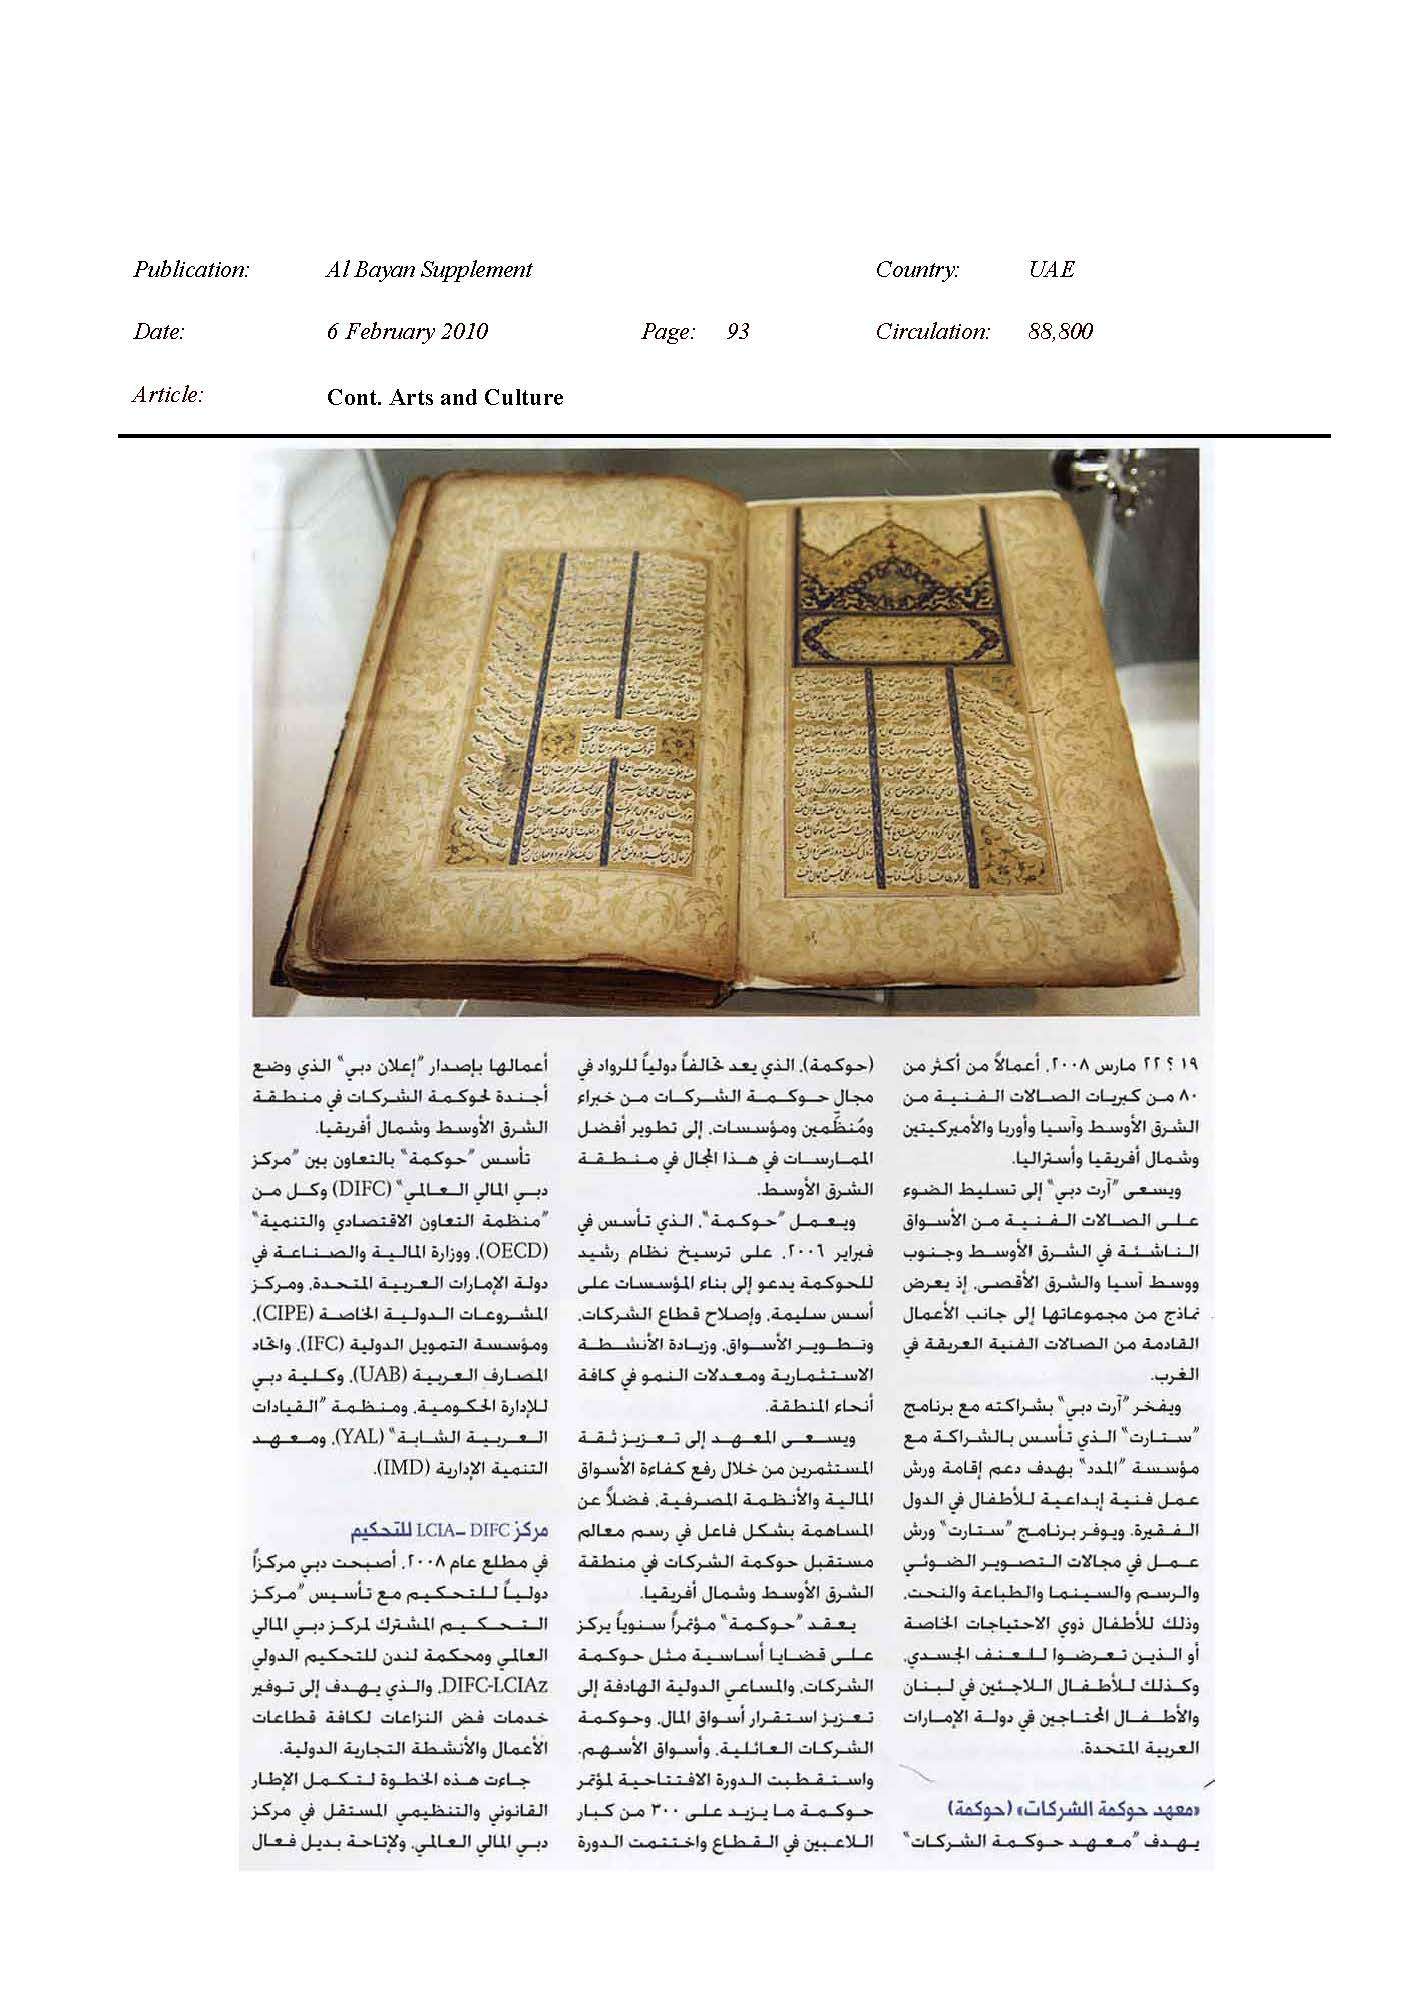 Publication: Al Bayan Supplement Country: UAE
Date: 6 February 2010 Page: 93 Circulation: 88,800
Article: Cont. Arts and Culture
١٩ ؟ ٢٢ مارس ٢٠٠٨، أعمالاً من أكثر من
٨٠ من كبريات الصالات الفنية من
الشرق الأوسط وآسيا وأوربا والأميركيتين
وشمال أفريقيا وأستراليا.
ويسعى "آرت دبي" إلى تسليط الضوء
على الصالات الفنية من الأسواق
الناشئة في الشرق الأوسط وجنوب
ووسط آسيا والشرق الأقصى، إذ يعرض
نماذج من مجموعاتها إلى جانب الأعمال
القادمة من الصالات الفنية العريقة في
الغرب.
ويفخر "آرت دبي" بشراكته مع برنامج
"ستارت" الذي تأسس بالشراكة مع
مؤسسة "المدد" بهدف دعم إقامة ورش
عمل فنية إبداعية للأطفال في الدول
الفقيرة. ويوفر برنامج "ستارت" ورش
عمل في مجالات التصوير الضوئي
والرسم والسينما والطباعة والنحت،
وذلك للأطفال ذوي الاحتياجات الخاصة
أو الذين تعرضوا للعنف الجسدي،
وكذلك للأطفال اللاجئين في لبنان
والأطفال المحتاجين في دولة الإمارات
العربية المتحدة.
«معهد حوكمة الشركات» (حوكمة)
يهدف "معهد حوكمة الشركات"
(حوكمة)، الذي يعد تحالفاً دولياً للرواد في
مجال حوكمة الشركات من خبراء
ومُنظّمين ومؤسسات، إلى تطوير أفضل
الممارسات في هذا المجال في منطقة
الشرق الأوسط.
ويعمل "حوكمة"، الذي تأسس في
فبراير ٢٠٠٦، على ترسيخ نظام رشيد
للحوكمة يدعو إلى بناء المؤسسات على
أسس سليمة، وإصلاح قطاع الشركات،
وتطوير الأسواق، وزيادة الأنشطة
الاستثمارية ومعدلات النمو في كافة
أنحاء المنطقة.
ويسعى المعهد إلى تعزيز ثقة
المستثمرين من خلال رفع كفاءة الأسواق
المالية والأنظمة المصرفية، فضلاً عن
المساهمة بشكل فاعل في رسم معالم
مستقبل حوكمة الشركات في منطقة
الشرق الأوسط وشمال أفريقيا.
يعقد "حوكمة" مؤتمراً سنوياً يركز
على قضايا أساسية مثل حوكمة
الشركات، والمساعي الدولية الهادفة إلى
تعزيز استقرار أسواق المال، وحوكمة
الشركات العائلية، وأسواق الأسهم.
واستقطبت الدورة الافتتاحية لمؤتمر
حوكمة ما يزيد على ٣٠٠ من كبار
اللاعبين في القطاع واختتمت الدورة
أعمالها بإصدار "إعلان دبي" الذي وضع
أجندة لحوكمة الشركات في منطقة
الشرق الأوسط وشمال أفريقيا.
تأسس "حوكمة" بالتعاون بين "مركز
دبي المالي العالمي" (DIFC) وكل من
"منظمة التعاون الاقتصادي والتنمية"
(OECD)، ووزارة المالية والصناعة في
دولة الإمارات العربية المتحدة، ومركز
المشروعات الدولية الخاصة (CIPE)،
ومؤسسة التمويل الدولية (IFC)، واتحاد
المصارف العربية (UAB)، وكلية دبي
للإدارة الحكومية، ومنظمة "القيادات
العربية الشابة" (YAL)، ومعهد
التنمية الإدارية (IMD).
مركز LCIA– DIFC للتحكيم
في مطلع عام ٢٠٠٨، أصبحت دبي مركزاً
دولياً للتحكيم مع تأسيس "مركز
التحكيم المشترك لمركز دبي المالي
العالمي ومحكمة لندن للتحكيم الدولي
DIFC-LCIAz، والذي يهدف إلى توفير
خدمات فض النزاعات لكافة قطاعات
الأعمال والأنشطة التجارية الدولية.
جاءت هذه الخطوة لتكمل الإطار
القانوني والتنظيمي المستقل في مركز
دبي المالي العالمي، ولإتاحة بديل فعال